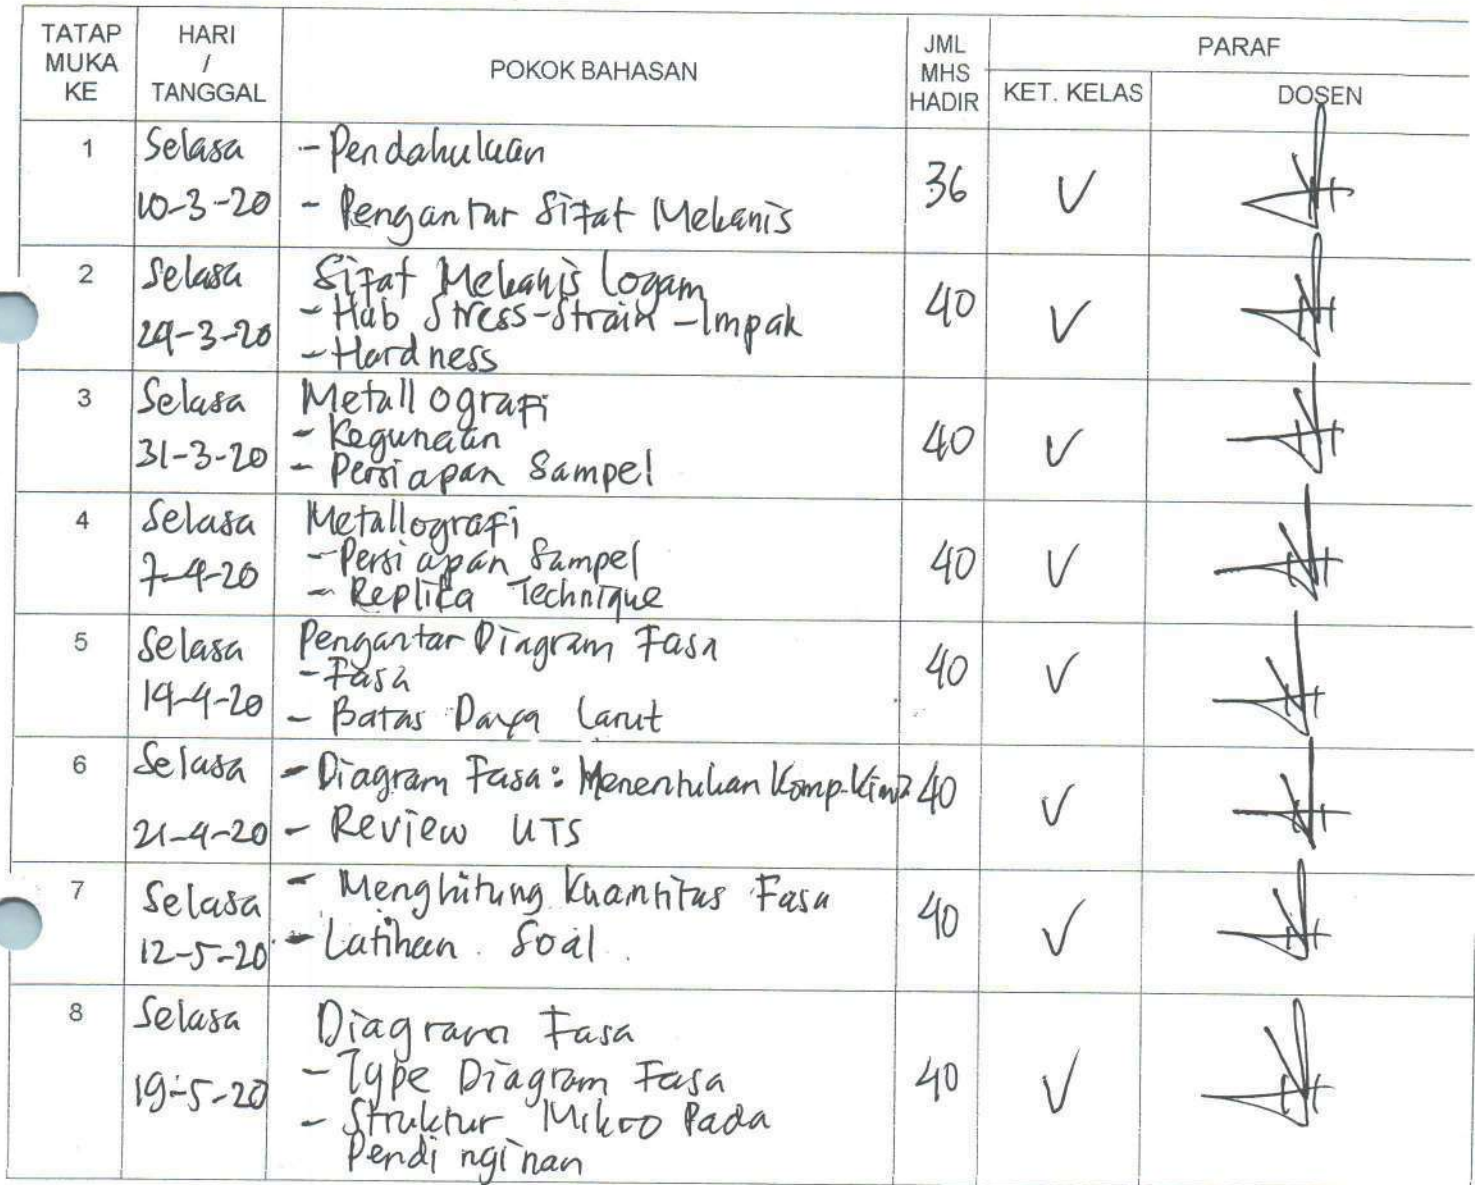 TATAP MUKA KE
HARI / TANGGAL
POKOK BAHASAN
JML MHS HADIR
PARAF
KET. KELAS
DOSEN
1
Selasa
10-3-20
- Pendahuluan
- Pengantar Sifat Mekanis
36
V
2
Selasa
24-3-20
Sifat Mekanis Logam
- Hub Stress-Strain - Impak
- Hardness
40
V
3
Selasa
31-3-20
Metallografi
- Kegunaan
- Persiapan Sampel
40
V
4
Selasa
7-4-20
Metallografi
- Persiapan Sampel
- Replika Technique
40
V
5
Selasa
14-4-20
Pengantar Diagram Fasa
- Fasa
- Batas Daya Larut
40
V
6
Selasa
21-4-20
- Diagram Fasa: Menentukan Komp. Kimia
- Review UTS
40
V
7
Selasa
12-5-20
- Menghitung Kuantitas Fasa
- Latihan Soal
40
V
8
Selasa
19-5-20
Diagram Fasa
- Type Diagram Fasa
- Struktur Mikro Pada
Pendinginan
40
V